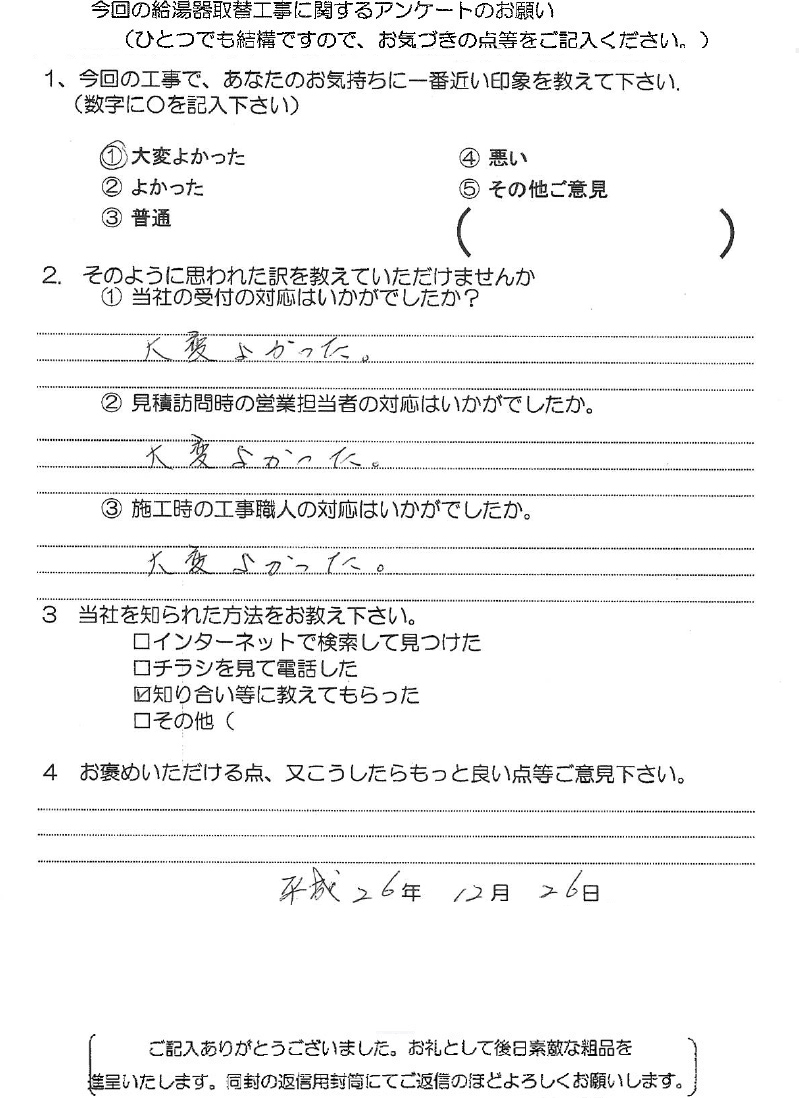 今回の給湯器取替工事に関するアンケートのお願い
（ひとつでも結構ですので、お気づきの点等をご記入ください。）
1、今回の工事で、あなたのお気持ちに一番近い印象を教えて下さい.
（数字に〇を記入下さい）
① 大変よかった
② よかった
③ 普通
④ 悪い
⑤ その他ご意見
（ ）
2. そのように思われた訳を教えていただけませんか
① 当社の受付の対応はいかがでしたか？
大変よかった。
② 見積訪問時の営業担当者の対応はいかがでしたか。
大変よかった。
③ 施工時の工事職人の対応はいかがでしたか。
大変よかった。
3 当社を知られた方法をお教え下さい。
□インターネットで検索して見つけた
□チラシを見て電話した
☑知り合い等に教えてもらった
□その他（
4 お褒めいただける点、又こうしたらもっと良い点等ご意見下さい。
平成26年 12月 26日
ご記入ありがとうございました。お礼として後日素敵な粗品を
進呈いたします。同封の返信用封筒にてご返信のほどよろしくお願いします。